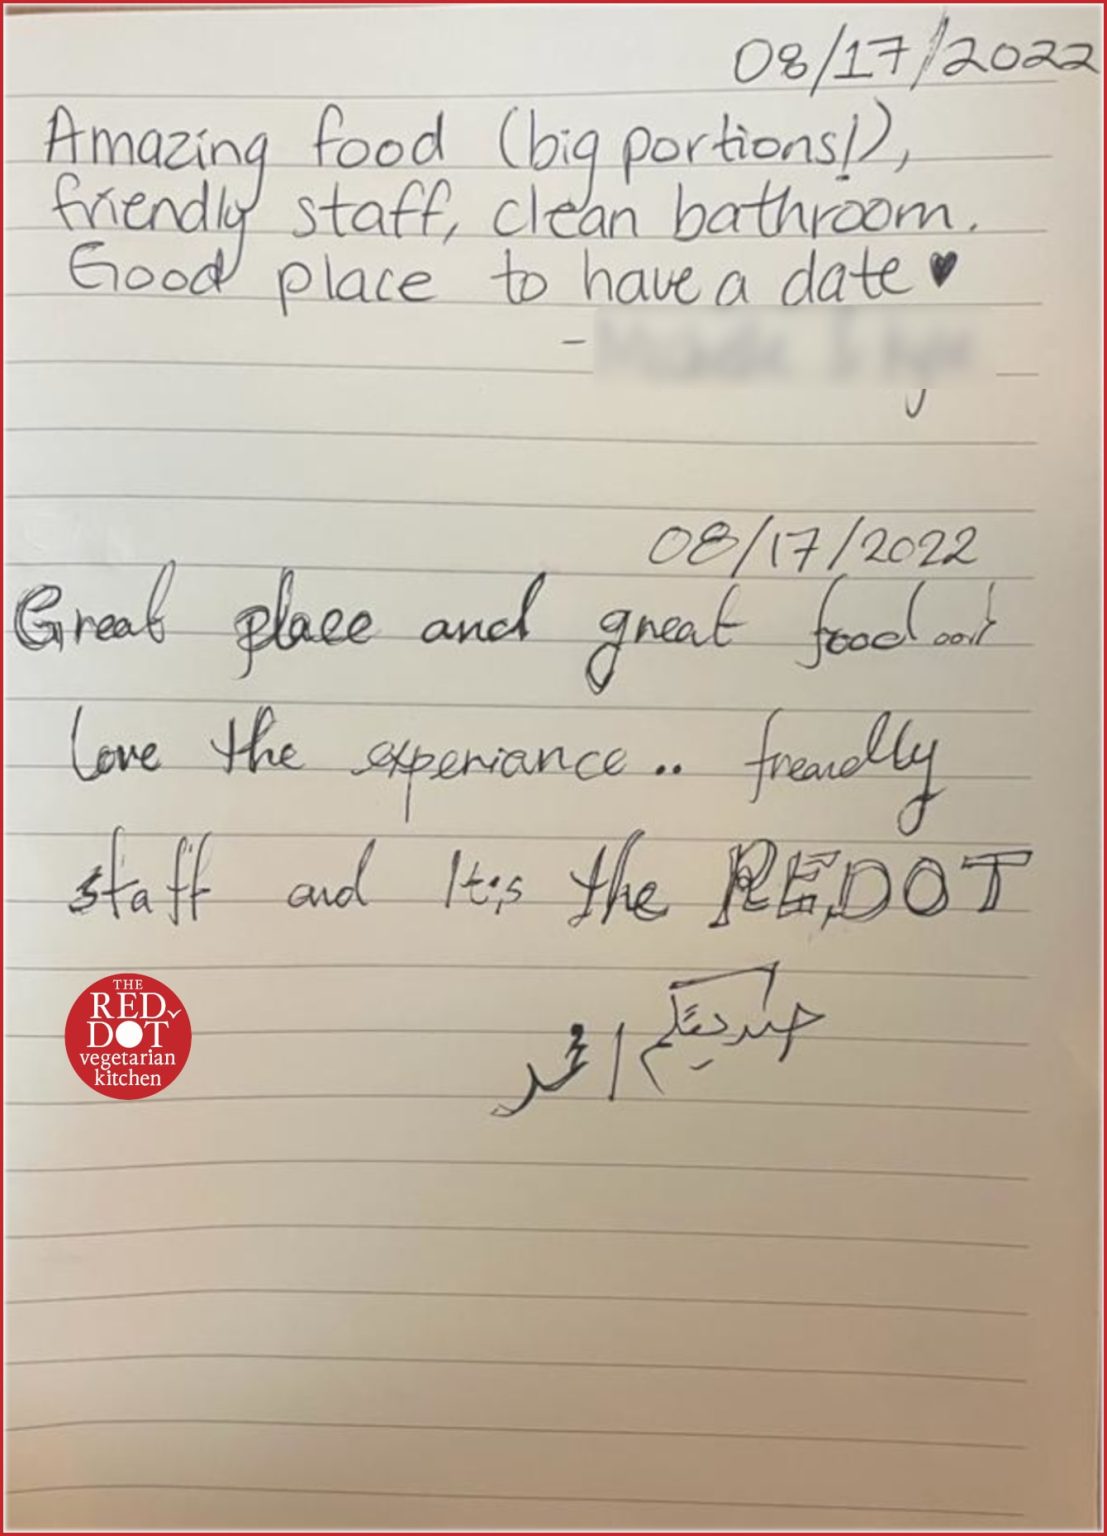 08/17/2022
Amazing food (big portions!),
friendly staff, clean bathroom.
Good place to have a date ♥
-
08/17/2022
Great place and great food
love the experiance .. freandly
staff and It's the REDOT
THE
RED
DOT
vegetarian
kitchen